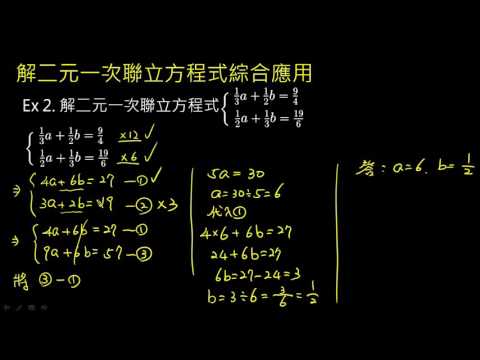 解二元一次聯立方程式綜合應用
Ex 2. 解二元一次聯立方程式{ 1/3 a + 1/2 b = 9/4
1/2 a + 1/3 b = 19/6
{ 1/3 a + 1/2 b = 9/4 ×12 ✓
1/2 a + 1/3 b = 19/6 ×6 ✓
⇒ { 4a+6b=27 —① ✓
3a+2b=19 —② ×3
⇒ { 4a+6b=27 —①
9a+6b=57 —③
將 ③-①
5a=30
a=30÷5=6
代入①
4×6+6b=27
24+6b=27
6b=27-24=3
b=3÷6=3/6=1/2
答: a=6. b=1/2